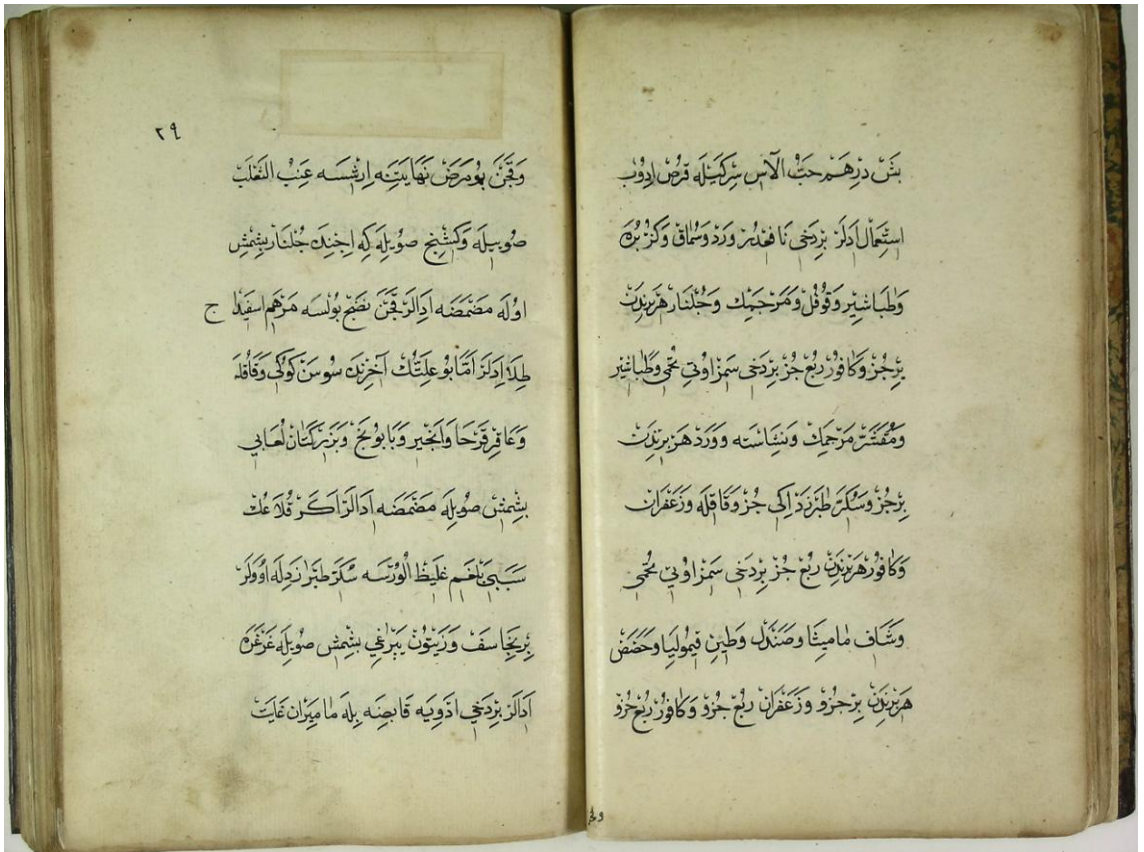 بَش دِرْهَم حَبُّ الْآس سِرْكَيْلَه قُرْص اِدُوبْ
اِسْتِعْمَال اِدَلَرْ بِرْدَخِى نَافِعْدُرْ وَرْد وَسُمَاق وَكُزْبُرَه
وَطَبَاشِير وَقُوفُل وَمَرْجَمِك وَجُلَّنَار هَرْبِرِنْدَنْ
بِرْجُزْ وَكَافُور رُبْع جُزْ بِرْدَخِى سَمِزْ اَوتِى تُخْمِى وَطَبَاشِير
وَمُقَشَّر مَرْجَمِك وَنِشَاسْتَه وَوَرْد هَرْبِرِنْدَنْ
بِرْجُزْ وَسُكَّر طَبَرْزَدْ اِكِى جُزْ وَقَاقُلَه وَزَعْفَرَان
وَكَافُور هَرْبِرِنْدَنْ رُبْع جُزْ بِرْدَخِى سَمِزْ اَوتِى تُخْمِى
وَشَاف مَامِيثَا وَصَنْدَل وَطِينِ قِيمُولِيَا وَحُضَض
هَرْبِرِنْدَنْ بِرْجُزْو وَزَعْفَرَان رُبْع جُزْو وَكَافُور رُبْع جُزْو
وقچن
٢٩
وَقَچَنْ بُو مَرَض نَهَايَتِنَه اِرِشْسَه عِنَبُ الثَّعْلَبْ
صُويِيلَه وَكِشْنِيج صُويِلَه كِه اِچِنْدَه جُلَّنَار بِشْمِش
اوُلَه مَضْمَضَه اِدَالَرْ قَچَنْ نَضْج بُولْسَه مَرْهَم اسفيدا ج
طِلَا اِدَلَرْ اَمَّا بُو عِلَّتُكْ آخِرِنْدَه سُوسَنْ كوُكِى وَقَاقُلَه
وَعَاقِرْقَرْحَا وَاَنْجِير وَبَابُونَج وَبَزْرَكَتَان لُعَابِى
بِشْمِش صُويِلَه مَضْمَضَه اِدَالَرْ اَكَرْ قُلَاعُكْ
سَبَبِى بَلْغَم غَلِيظ الُورْسَه سُكَّر طَبَرْزَدِلَه اوُوَلَرْ
بِرِنْجَاسَف وَزَيْتُون يَپْرَاغِى بِشْمِش صُويِلَه غَرْغَرَه
اِدَالَرْ بِرْدَخِى اَدْوِيَه قَابِضَه بِلَه مَامِيرَان غَايَتْ